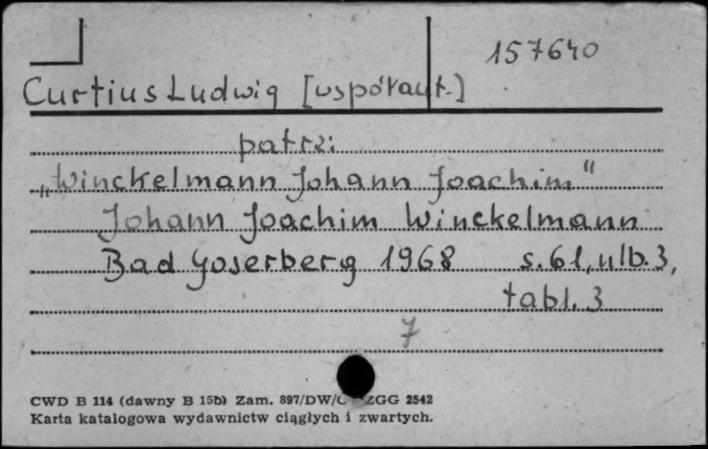 157640
Curtius Ludwig [współaut.]
patrz:
„Winckelmann Johann Joachim"
Johann Joachim Winckelmann
Bad Goserberg 1968 s. 61, nlb. 3,
tabl. 3
7
CWD B 114 (dawny B 15b) Zam. 897/DW/ ZGG 2542
Karta katalogowa wydawnictw ciągłych i zwartych.